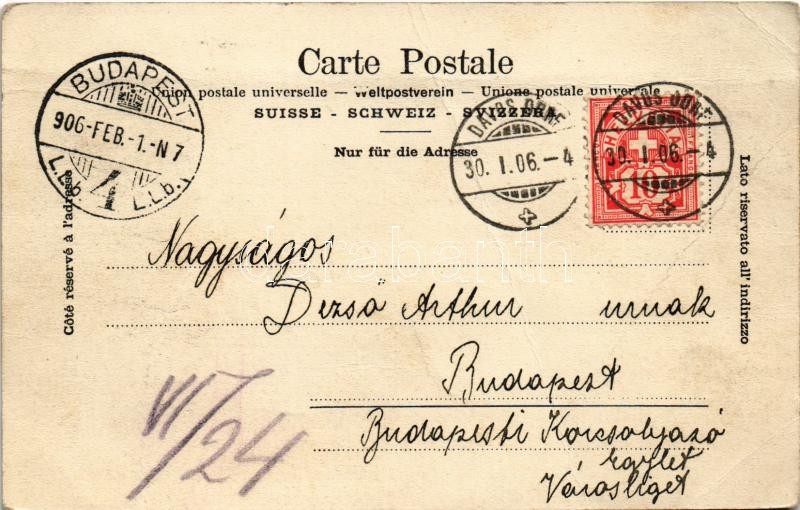 Carte Postale
Union postale universelle — Weltpostverein — Unione postale universale
SUISSE - SCHWEIZ - SVIZZERA
Nur für die Adresse
Côté réservé à l'adresse
Lato riservato all' indirizzo
BUDAPEST
906-FEB.-1.-N7
4
L.L.b.
DAVOS DORF
30. I. 06. - 4
DAVOS DORF
30. I. 06. - 4
10
darabanth
Nagyságos
Dezső Arthur urnak
Budapest
Budapesti Korcsolyazó
Egylet
Városliget
VI/24